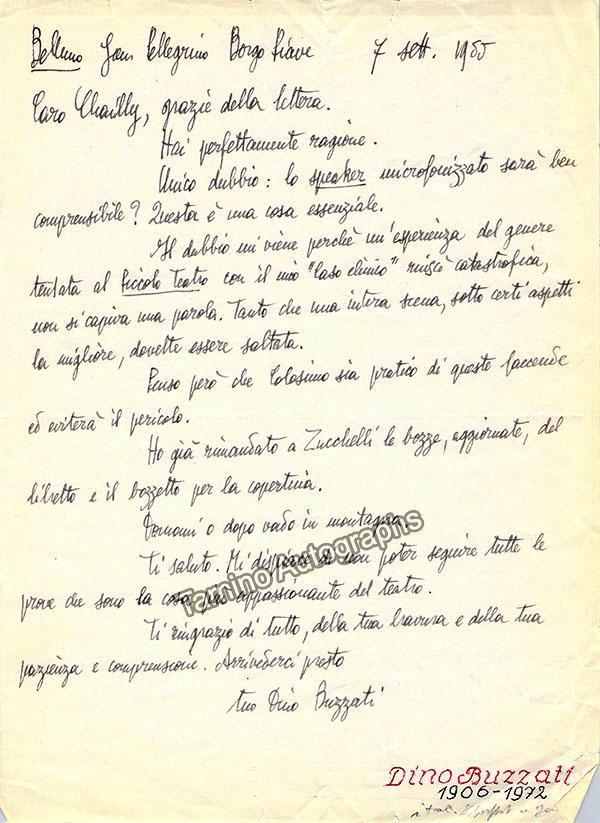 Belluno San Pellegrino Borgo Piave 7 sett. 1955
Caro Chailly, grazie della lettera.
Hai perfettamente ragione.
Unico dubbio: lo speaker microfonizzato sarà ben
comprensibile? Questa è una cosa essenziale.
Il dubbio mi viene perchè un'esperienza del genere
tentata al Piccolo Teatro con il mio "Caso clinico" riuscì catastrofica,
non si capiva una parola. Tanto che una intera scena, sotto certi aspetti
la migliore, dovette essere saltata.
Penso però che Colosimo sia pratico di queste faccende
ed eviterà il pericolo.
Ho già rimandato a Zucchelli le bozze, aggiornate, del
libretto e il bozzetto per la copertina.
Domani o dopo vado in montagna.
Ti saluto. Mi dispiace di non poter seguire tutte le
prove che sono la cosa più appassionante del teatro.
Ti ringrazio di tutto, della tua bravura e della tua
pazienza e comprensione. Arrivederci presto
tuo Dino Buzzati
Tamino Autographs
Dino Buzzati
1906-1972